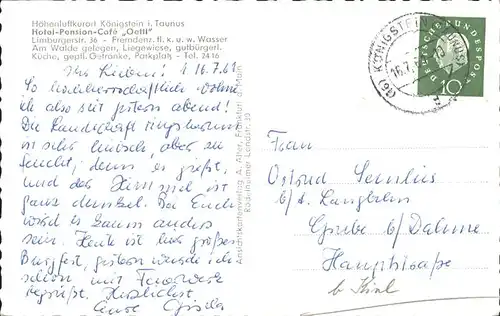 Höhenluftkurort Königstein i. Taunus
Hotel-Pension-Café „Oettl"
Limburgerstr. 36 - Fremdenz. fl. k. u. w. Wasser
Am Walde gelegen, Liegewiese, gutbürgerl.
Küche, gepfl. Getränke, Parkplatz - Tel. 2416
Ihr Lieben! 16.7.61
So
ich also seit gestern abend!
Die Landschaft ringsherum
ist sehr hübsch, aber zu
feucht, denn es gießt,
und der Himmel ist
ganz dunkel. Bei Euch
wird es kaum anders
sein. Heute ist hier großes
Burgfest, gestern wurde ich
schon mit Feuerwerk
begrüßt. Herzlichst
Eure Gisela
Ansichtskartenverlag A. Alter, Frankfurt a. Main
Rödelheimer Landstr. 39
(16) KÖNIGSTEIN (TAUNUS)
16.7.
DEUTSCHE BUNDESPOST
10
Frau
b/d.
Grube b/Dahme
Hauptstraße
b. Kiel